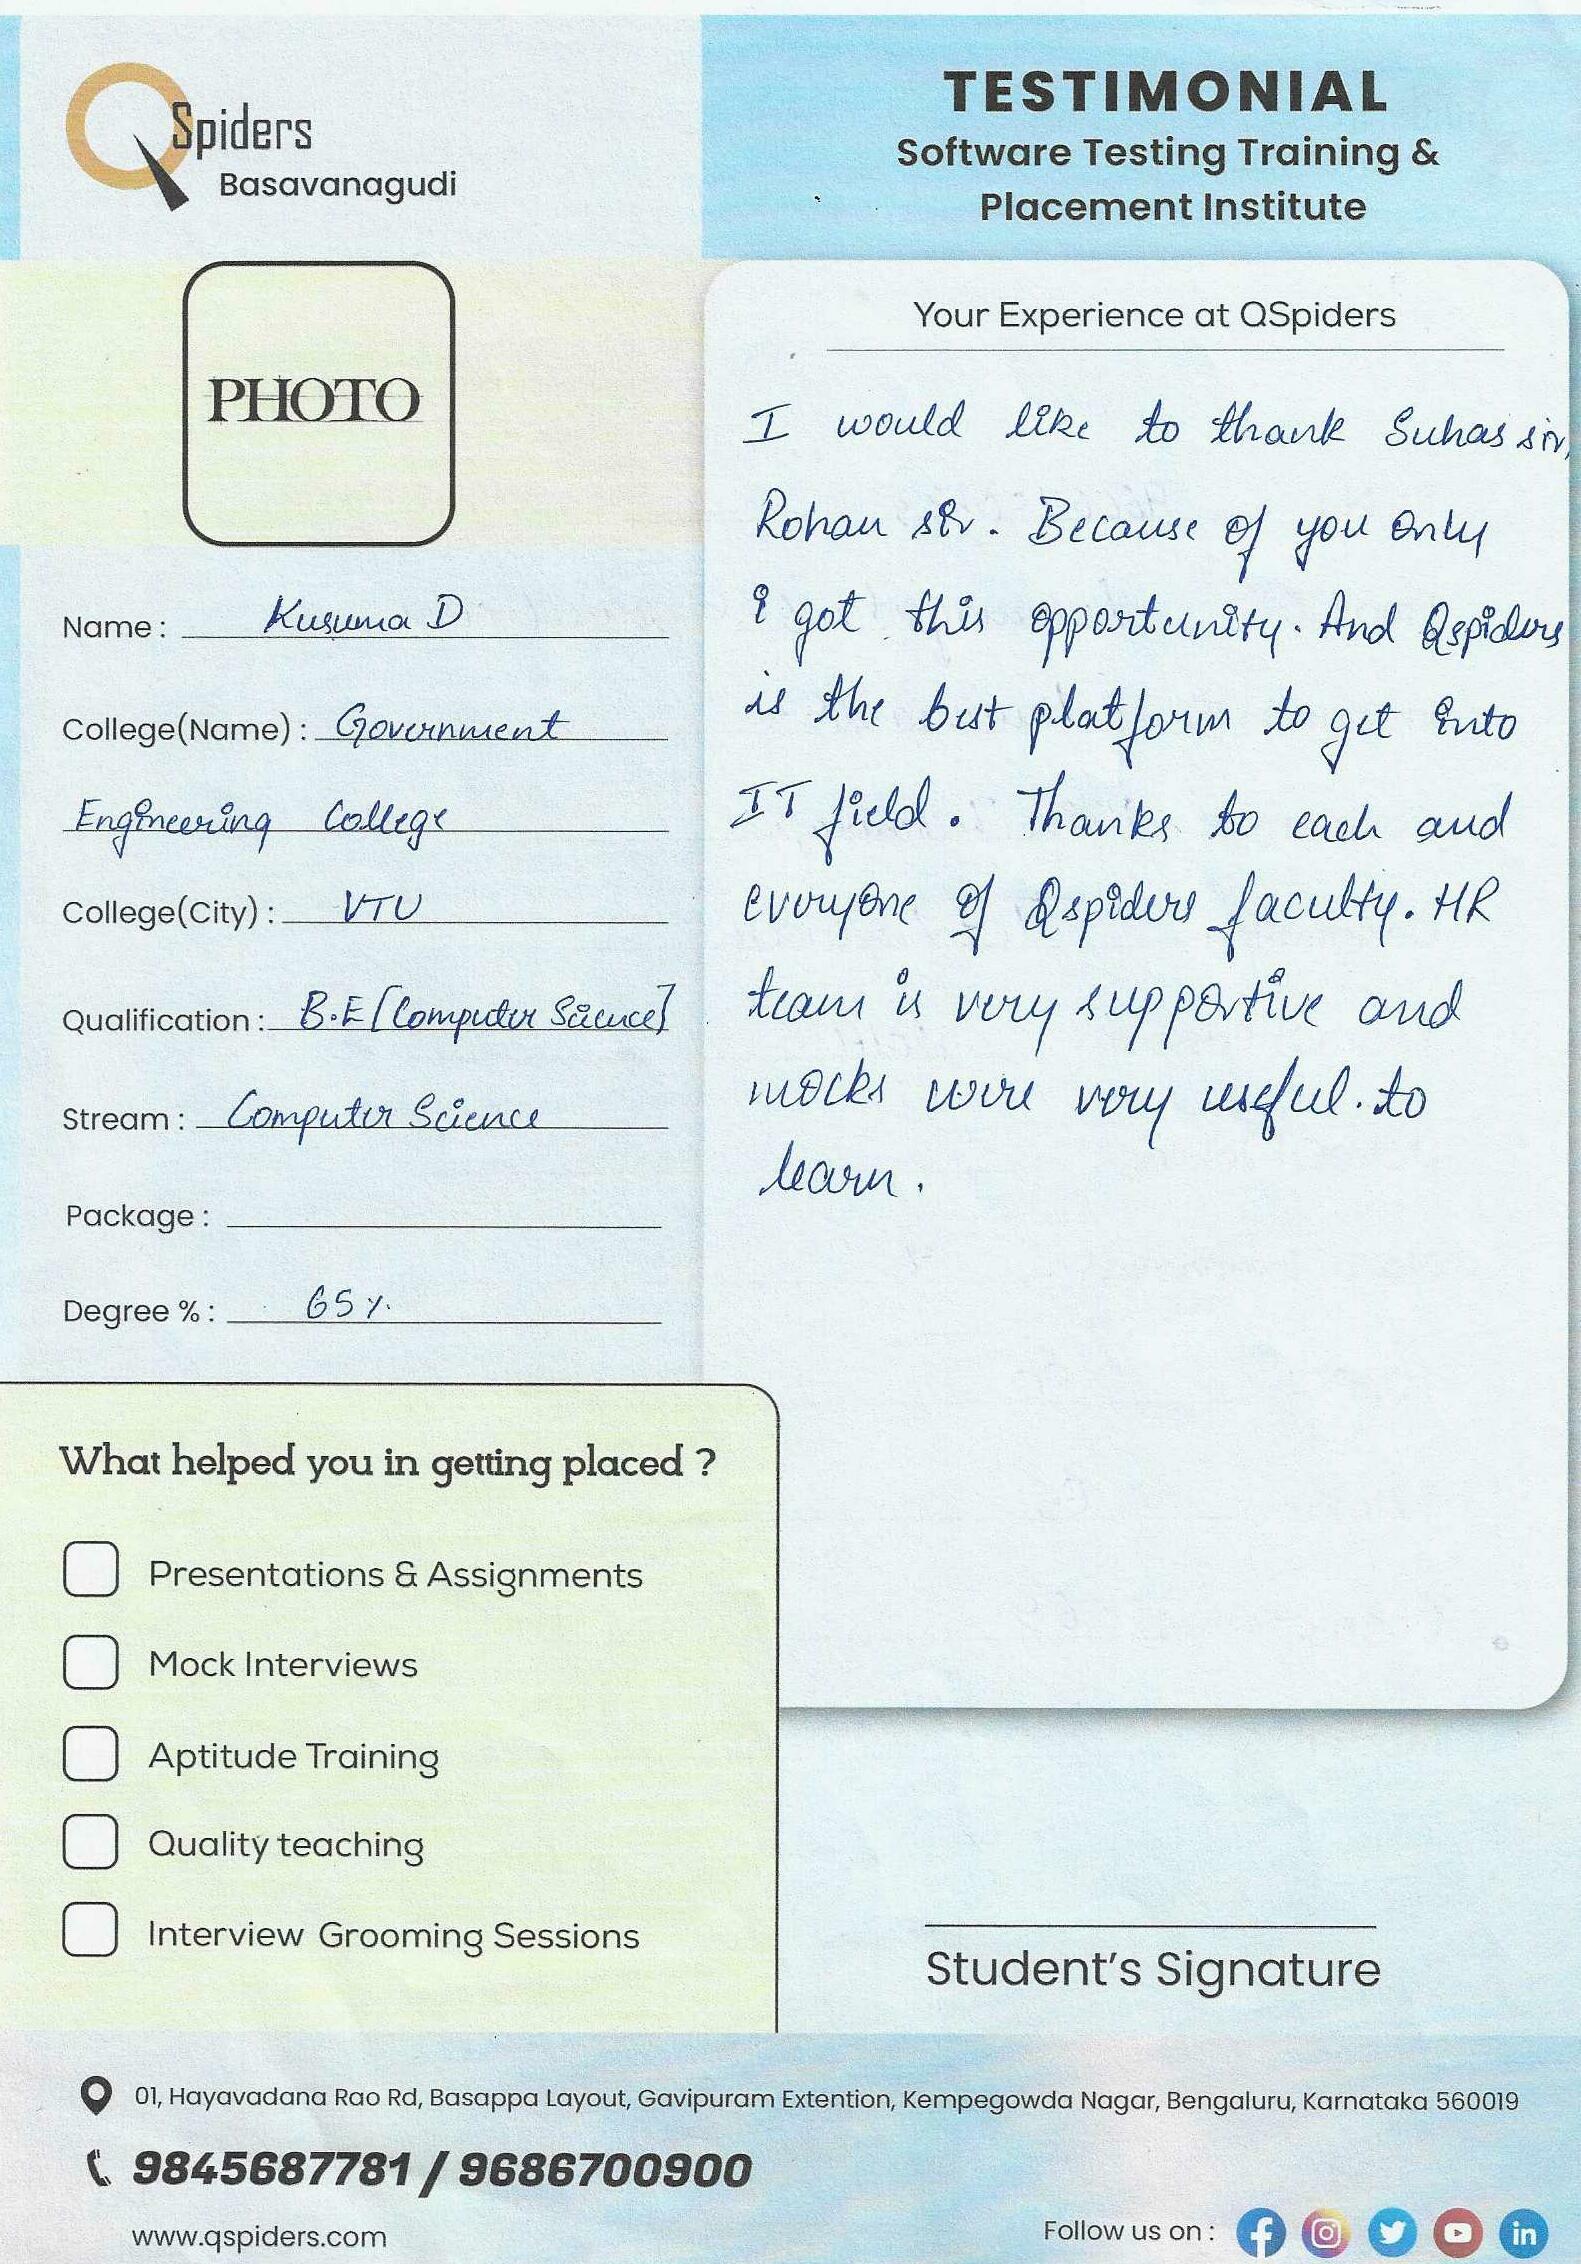 QSpiders
Basavanagudi
TESTIMONIAL
Software Testing Training &
Placement Institute
PHOTO
Name : Kusuma D
College(Name) : Government
Engineering College
College(City) : VTU
Qualification : B.E [Computer Science]
Stream : Computer Science
Package :
Degree % : 65 %
Your Experience at QSpiders
I would like to thank Suhas sir,
Rohan sir. Because of you only
i got this opportunity. And Qspiders
is the best platform to get into
IT field. Thanks to each and
everyone of Qspiders faculty. HR
team is very supportive and
mocks were very useful. to
learn.
What helped you in getting placed ?
Presentations & Assignments
Mock Interviews
Aptitude Training
Quality teaching
Interview Grooming Sessions
Student's Signature
01, Hayavadana Rao Rd, Basappa Layout, Gavipuram Extention, Kempegowda Nagar, Bengaluru, Karnataka 560019
9845687781 / 9686700900
www.qspiders.com
Follow us on :